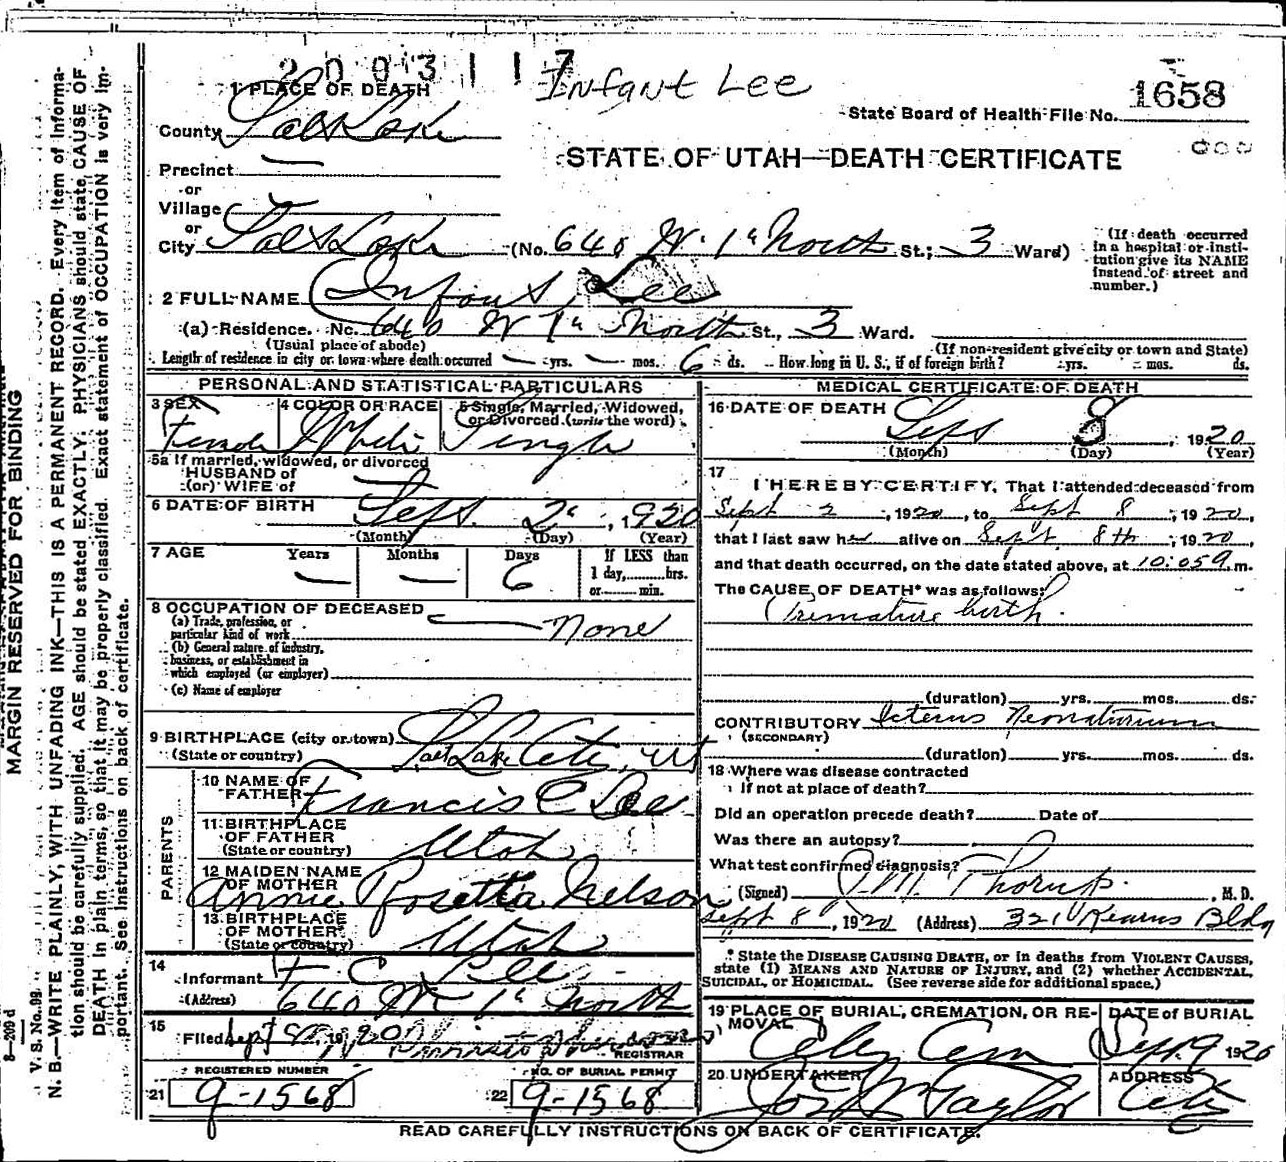 2003117
Infant Lee
1658
State Board of Health File No.
1 PLACE OF DEATH
County Salt Lake
STATE OF UTAH—DEATH CERTIFICATE
Precinct
or
Village
or
City Salt Lake (No. 640 W. 1st North St.; 3 Ward)
(If death occurred in a hospital or institution give its NAME instead of street and number.)
2 FULL NAME Infant Lee
(a) Residence. No. 640 W 1st North St., 3 Ward.
(Usual place of abode) (If non-resident give city or town and State)
Length of residence in city or town where death occurred — yrs. — mos. 6 ds. How long in U. S., if of foreign birth? yrs. mos. ds.
PERSONAL AND STATISTICAL PARTICULARS
3 SEX Female
4 COLOR OR RACE White
5 Single, Married, Widowed, or Divorced (write the word) Single
5a If married, widowed, or divorced
HUSBAND of
(or) WIFE of
6 DATE OF BIRTH Sept. 2", 1920
(Month) (Day) (Year)
7 AGE Years — Months — Days 6
If LESS than
1 day, hrs.
or min.
8 OCCUPATION OF DECEASED
(a) Trade, profession, or
particular kind of work None
(b) General nature of industry,
business, or establishment in
which employed (or employer)
(c) Name of employer
9 BIRTHPLACE (city or town) Salt Lake City, Ut
(State or country)
PARENTS
10 NAME OF FATHER Francis C Lee
11 BIRTHPLACE OF FATHER Utah
(State or country)
12 MAIDEN NAME OF MOTHER Annie Rosetta Nelson
13 BIRTHPLACE OF MOTHER Utah
(State or country)
14
Informant F C Lee
(Address) 640 W 1st North
15
Filed Sept 1920
REGISTRAR
REGISTERED NUMBER
21 9-1568
NO. OF BURIAL PERMIT
22 9-1568
MEDICAL CERTIFICATE OF DEATH
16 DATE OF DEATH Sept 8, 1920
(Month) (Day) (Year)
17
I HEREBY CERTIFY, That I attended deceased from
Sept 2, 1920, to Sept 8, 1920,
that I last saw her alive on Sept. 8th, 1920,
and that death occurred, on the date stated above, at 10:05 a.m.
The CAUSE OF DEATH* was as follows:
Premature birth.
(duration) yrs. mos. ds.
CONTRIBUTORY Icterus Neonatorium
(SECONDARY)
(duration) yrs. mos. ds.
18 Where was disease contracted
if not at place of death?
Did an operation precede death? Date of
Was there an autopsy?
What test confirmed diagnosis?
(Signed) J. M. Thorup. M. D.
Sept 8, 1920 (Address) 321 Kearns Bldg
* State the DISEASE CAUSING DEATH, or in deaths from VIOLENT CAUSES,
state (1) MEANS AND NATURE OF INJURY, and (2) whether ACCIDENTAL,
SUICIDAL, or HOMICIDAL. (See reverse side for additional space.)
19 PLACE OF BURIAL, CREMATION, OR REMOVAL City Cem
DATE of BURIAL Sept. 9 1920
20 UNDERTAKER Jos Wm Taylor
ADDRESS City
READ CAREFULLY INSTRUCTIONS ON BACK OF CERTIFICATE.
MARGIN RESERVED FOR BINDING
N. B.—WRITE PLAINLY, WITH UNFADING INK—THIS IS A PERMANENT RECORD. Every item of information should be carefully supplied. AGE should be stated EXACTLY. PHYSICIANS should state CAUSE OF DEATH in plain terms, so that it may be properly classified. Exact statement of OCCUPATION is very important. See instructions on back of certificate.
V. S. No. 99
8—209 d